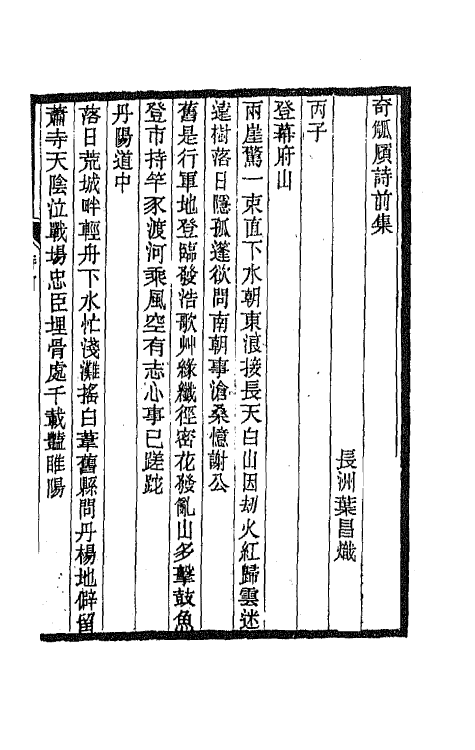 奇觚廎詩前集
長洲葉昌熾
丙子
登幕府山
兩崖驚一束直下水朝東浪接長天白山因劫火紅歸雲迷
遠樹落日隱孤蓬欲問南朝事滄桑憶謝公
舊是行軍地登臨發浩歌艸綠纖徑密花發亂山多擊鼓魚
登市持竿豕渡河乘風空有志心事已蹉跎
丹陽道中
落日荒城畔輕舟下水忙淺灘搖白葦舊縣問丹楊地僻留
蕭寺天陰泣戰場忠臣埋骨處千載豔睢陽